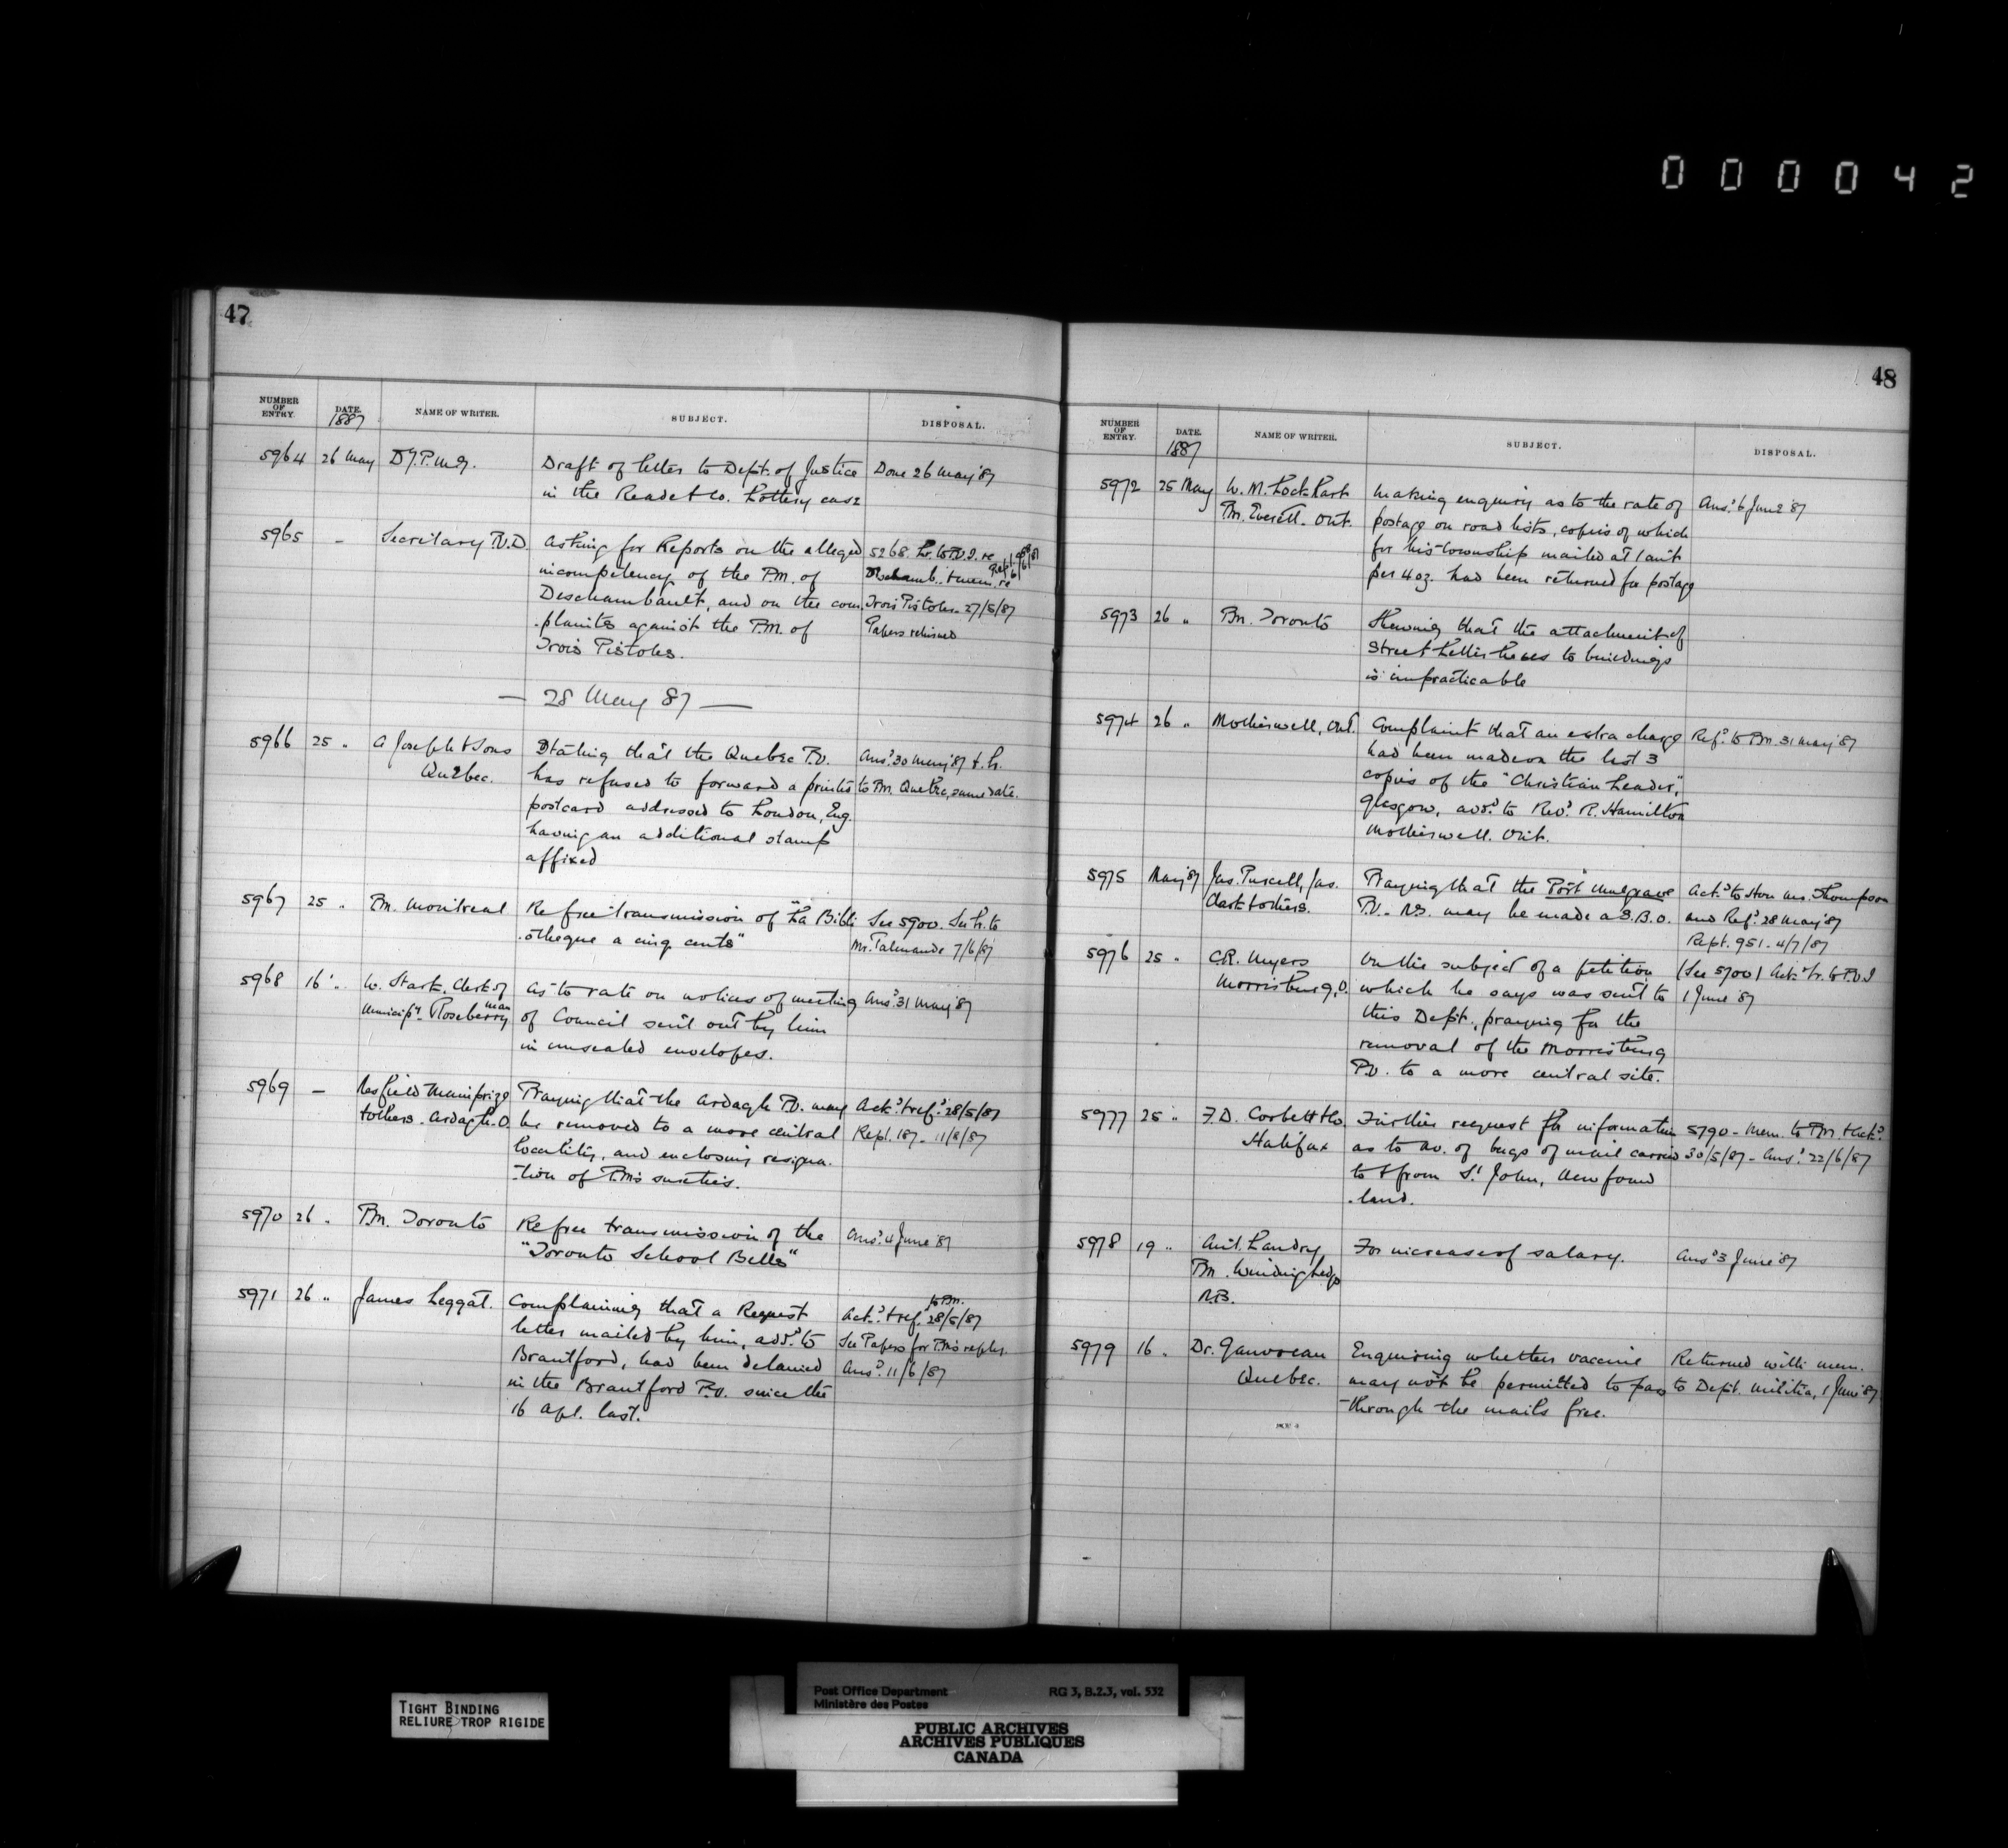 0 0 0 0 4 2
47
NUMBER OF ENTRY. DATE. 1887 NAME OF WRITER. SUBJECT. DISPOSAL.
5964 26 May D.P.M.G. Draft of letter to Dept. of Justice Done 26 May '87
in the Reade & Co. Lottery case
5965 - Secretary P.O.D. Asking for Reports on the alleged 5268. Lr. to P.O.I. re
incompetency of the P.M. of Deschamb. & mem. re
Deschambault, and on the com- Trois Pistoles. 27/5/87
-plaints against the P.M. of Papers returned
Trois Pistoles.
— 28 May 87 —
5966 25 " A Joseph & Sons Stating that the Quebec P.O. Ansd. 30 May '87 & lr.
Quebec. has refused to forward a printed to P.M. Quebec, same date.
postcard addressed to London, Eng.
having an additional stamp
affixed
5967 25 " P.M. Montreal Re free transmission of "La Bibli- See 5900. See lr. to
-otheque a cinq cents" Mr. 7/6/87
5968 16 " W. Stark, Clerk of As to rate on notices of meeting Ansd. 31 May '87
Municipy. Roseberry Man of Council sent out by him
in unsealed envelopes.
5969 — Mainprize Praying that the Ardagh P.O. may Ackd. & refd. 28/5/87
& others. Ardagh. O. be removed to a more central Rept. 187 - 11/8/87
locality, and enclosing resigna-
-tion of P.M's sureties.
5970 26 " P.M. Toronto Re free transmission of the Ansd. 4 June '87
"Toronto School Bells"
5971 26 " James Leggat. Complaining that a Request Ackd. & refd. to P.M. 28/5/87
letter mailed by him, addd. to See Papers for P.M's reply.
Brantford, had been detained Ansd. 11/6/87
in the Brantford P.O. since the
16 Apl. last.
48
NUMBER OF ENTRY. DATE. 1887 NAME OF WRITER. SUBJECT. DISPOSAL.
5972 25 May W. M. Lockhart Making enquiry as to the rate of Ansd. 6 June '87
P.M. Everett. Ont. postage on road lists, copies of which
for his township mailed at 1 cent
per 4 oz. had been returned for postage
5973 26 " P.M. Toronto Shewing that the attachment of
Street Letter boxes to buildings
is impracticable
5974 26 " Motherwell, Ont. Complaint that an extra charge Refd. to P.M. 31 May '87
had been made on the last 3
copies of the "Christian Leader",
Glasgow, addd. to Revd. R. Hamilton
Motherwell. Ont.
5975 May '87 Jas. Purcell, Jas. Praying that the Port Mulgrave Ackd. to Hon Mr. Thompson
Clark & others. P.O. N.S. may be made a S.B.O. and Refd. 28 May '87
Rept. 951 - 4/7/87
5976 25 " C.R. Myers On the subject of a petition (See 5700) Ackd. & lr. to P.O.I
Morrisburg, O. which he says was sent to 1 June '87
this Dept., praying for the
removal of the Morrisburg
P.O. to a more central site.
5977 25 " F.D. Corbett & Co. Further request for information 5790 - Mem. to P.M. & Ackd.
Halifax as to no. of bags of mail carried 30/5/87 - Ansd. 22/6/87
to & from St. John, Newfound
-land.
5978 19 " Landry, For increase of salary. Ansd. 3 June '87
P.M.
N.B.
5979 16 " Dr. Gauvreau Enquiring whether vaccine Returned with mem.
Quebec. may not be permitted to pass to Dept. Militia, 1 June '87
through the mails free.
TIGHT BINDING
RELIURE TROP RIGIDE
Post Office Department RG 3, B.2.3, vol. 532
Ministère des Postes
PUBLIC ARCHIVES
ARCHIVES PUBLIQUES
CANADA